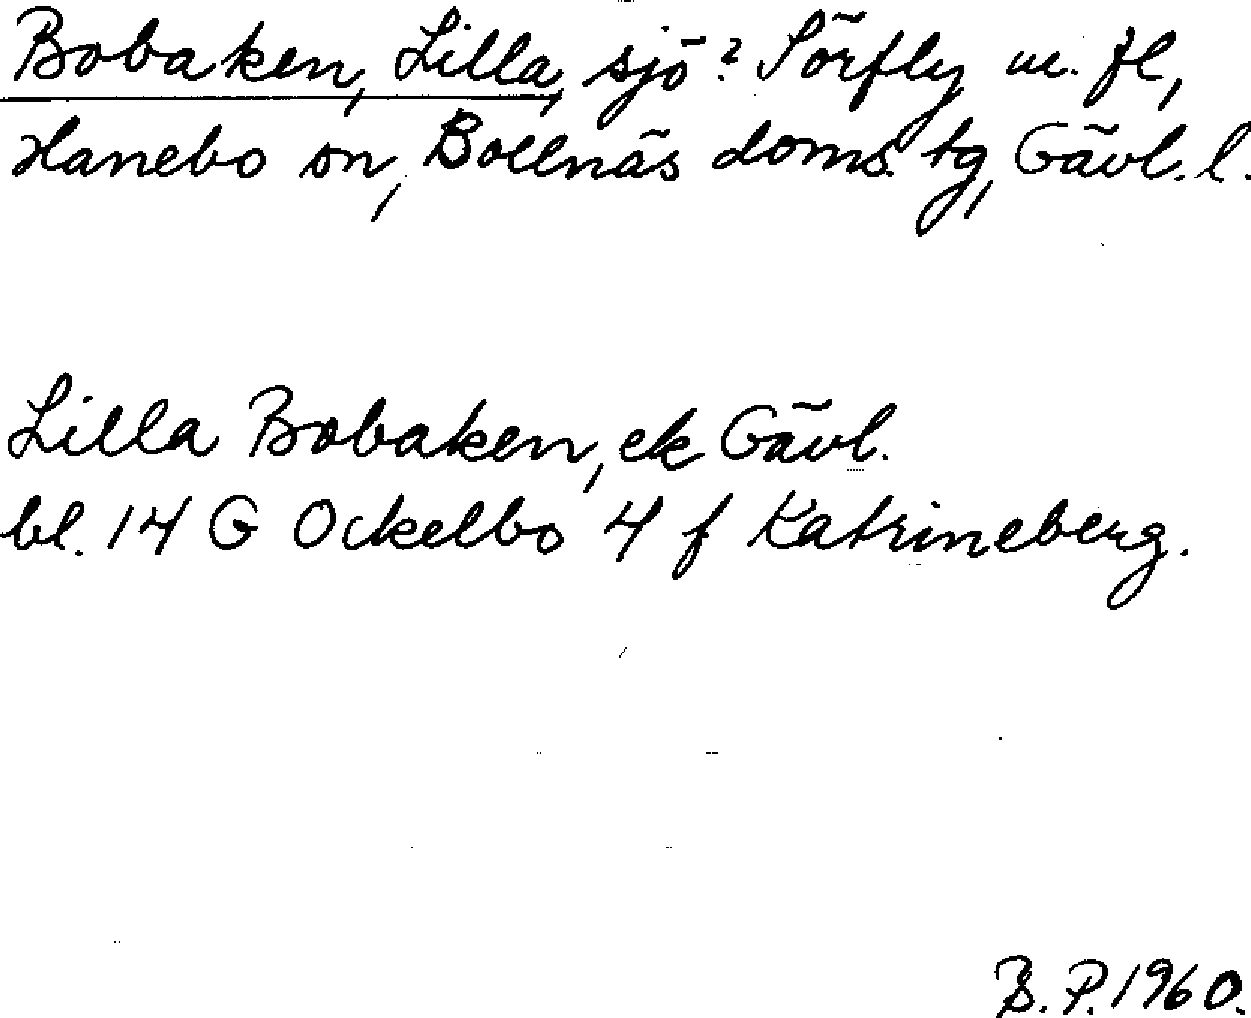 Bobaken, Lilla, sjö? Sörfly m. fl,
Hanebo sn, Bollnäs doms. tg, Gävl. l.
Lilla Bobaken, ek Gävl.
bl. 14 G Ockelbo 4 f Katrineberg.
B. P. 1960.